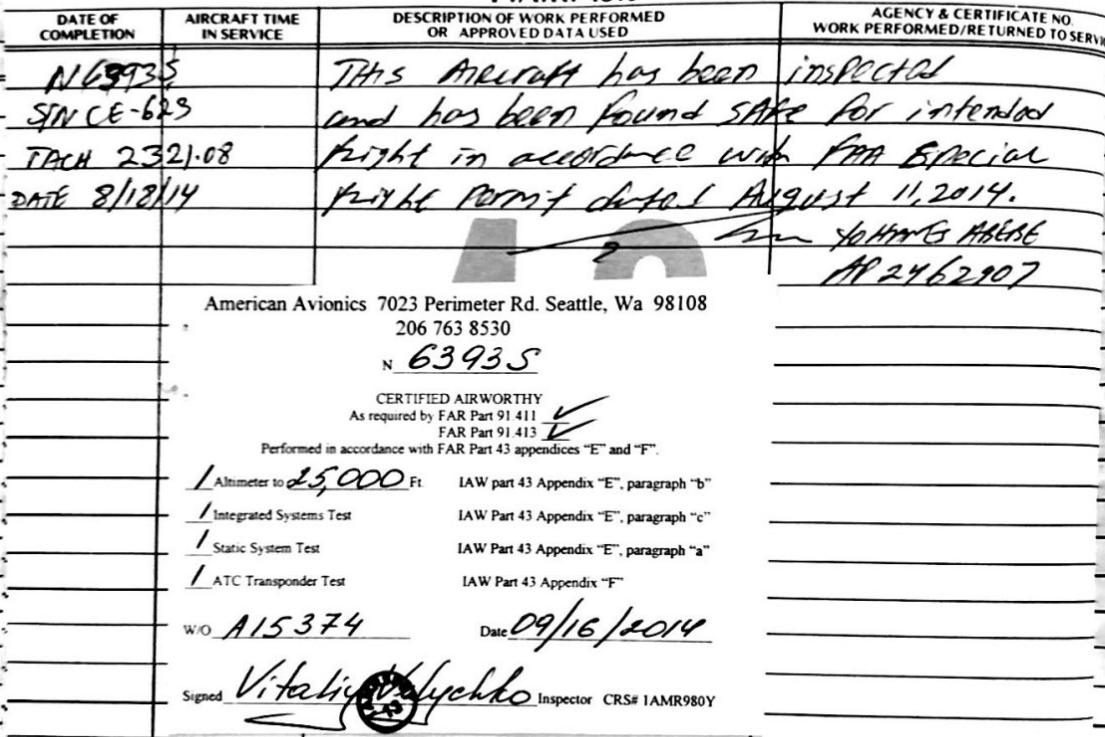 DATE OF COMPLETION
AIRCRAFT TIME IN SERVICE
DESCRIPTION OF WORK PERFORMED OR APPROVED DATA USED
AGENCY & CERTIFICATE NO. WORK PERFORMED/RETURNED TO
N6393S This Aircraft has been inspected
S/N CE-623 and has been found SAFE for intended
TACH 2321.08 flight in accordance with FAA Special
DATE 8/18/14 flight Permit dated August 11, 2014.
YOHANES ABEBE
AP 2462907
American Avionics 7023 Perimeter Rd. Seattle, Wa 98108
206 763 8530
N 6393S
CERTIFIED AIRWORTHY
As required by FAR Part 91.411 ✓
FAR Part 91.413 ✓
Performed in accordance with FAR Part 43 appendices “E” and “F”.
/ Altimeter to 25,000 Ft. IAW part 43 Appendix “E”, paragraph “b”
/ Integrated Systems Test IAW Part 43 Appendix “E”, paragraph “c”
/ Static System Test IAW Part 43 Appendix “E”, paragraph “a”
/ ATC Transponder Test IAW Part 43 Appendix “F”
W/O A15374 Date 09/16/2014
Signed Vitaliy Inspector CRS# 1AMR980Y